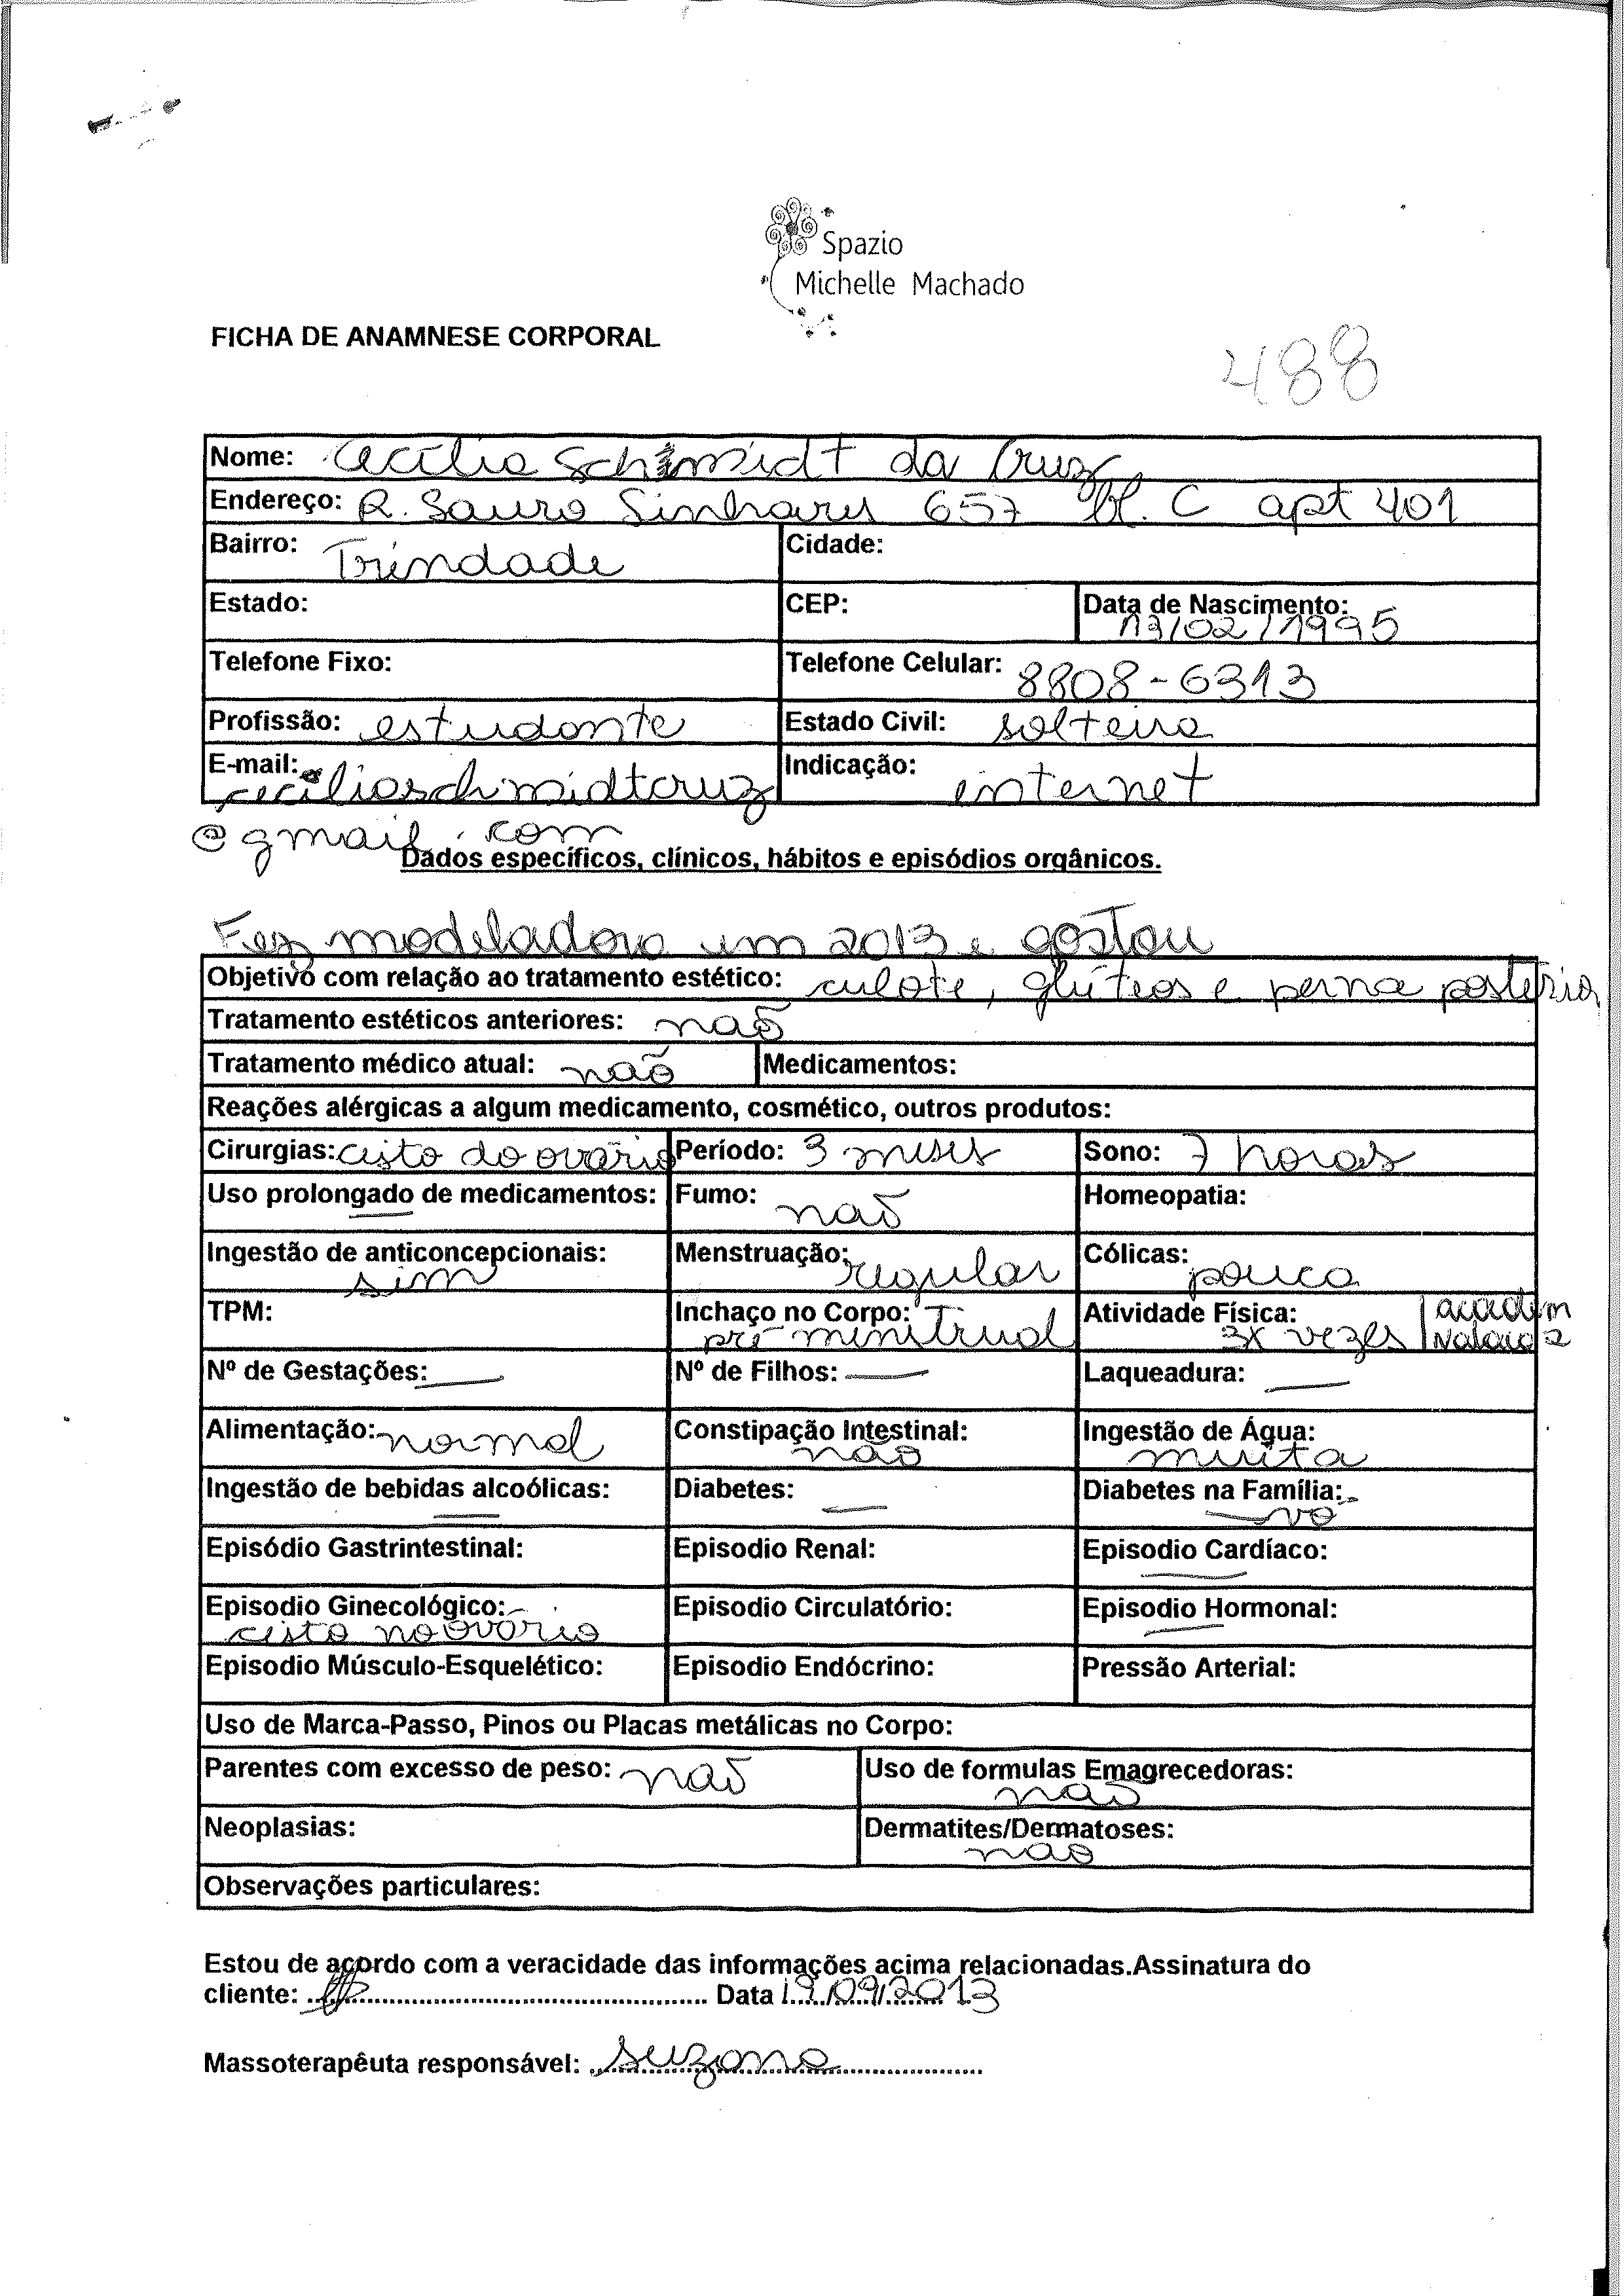 Spazio
Michelle Machado
FICHA DE ANAMNESE CORPORAL
488
Nome: Cecília Schimidt da Cruz
Endereço: R. Sauro Sinhares 657 bl. C apt 401
Bairro: Trindade Cidade:
Estado: CEP: Data de Nascimento:
13/02/1995
Telefone Fixo: Telefone Celular: 8808-6313
Profissão: estudante Estado Civil: solteira
E-mail: Indicação: internet
ceciliaschimidtcruz
@gmail.com
Dados específicos, clínicos, hábitos e episódios orgânicos.
Fez modeladora em 2013 e gostou
Objetivo com relação ao tratamento estético: culote, glúteos e perna posterior
Tratamento estéticos anteriores: não
Tratamento médico atual: não Medicamentos:
Reações alérgicas a algum medicamento, cosmético, outros produtos:
Cirurgias: cisto do ovário Período: 3 meses Sono: 7 horas
Uso prolongado de medicamentos: — Fumo: não Homeopatia:
Ingestão de anticoncepcionais: sim Menstruação: regular Cólicas: pouca
TPM: Inchaço no Corpo: pré menstrual Atividade Física: 3x vezes
Nº de Gestações: — Nº de Filhos: — Laqueadura: —
Alimentação: normal Constipação Intestinal: não Ingestão de Água: muita
Ingestão de bebidas alcoólicas: — Diabetes: — Diabetes na Família: — vó
Episódio Gastrintestinal: Episodio Renal: Episodio Cardíaco: —
Episodio Ginecológico: cisto no ovário Episodio Circulatório: Episodio Hormonal: —
Episodio Músculo-Esquelético: Episodio Endócrino: Pressão Arterial:
Uso de Marca-Passo, Pinos ou Placas metálicas no Corpo:
Parentes com excesso de peso: não Uso de formulas Emagrecedoras: não
Neoplasias: Dermatites/Dermatoses: não
Observações particulares:
Estou de acordo com a veracidade das informações acima relacionadas.Assinatura do
cliente: ........ Data 19/09/2013
Massoterapêuta responsável: Suzana